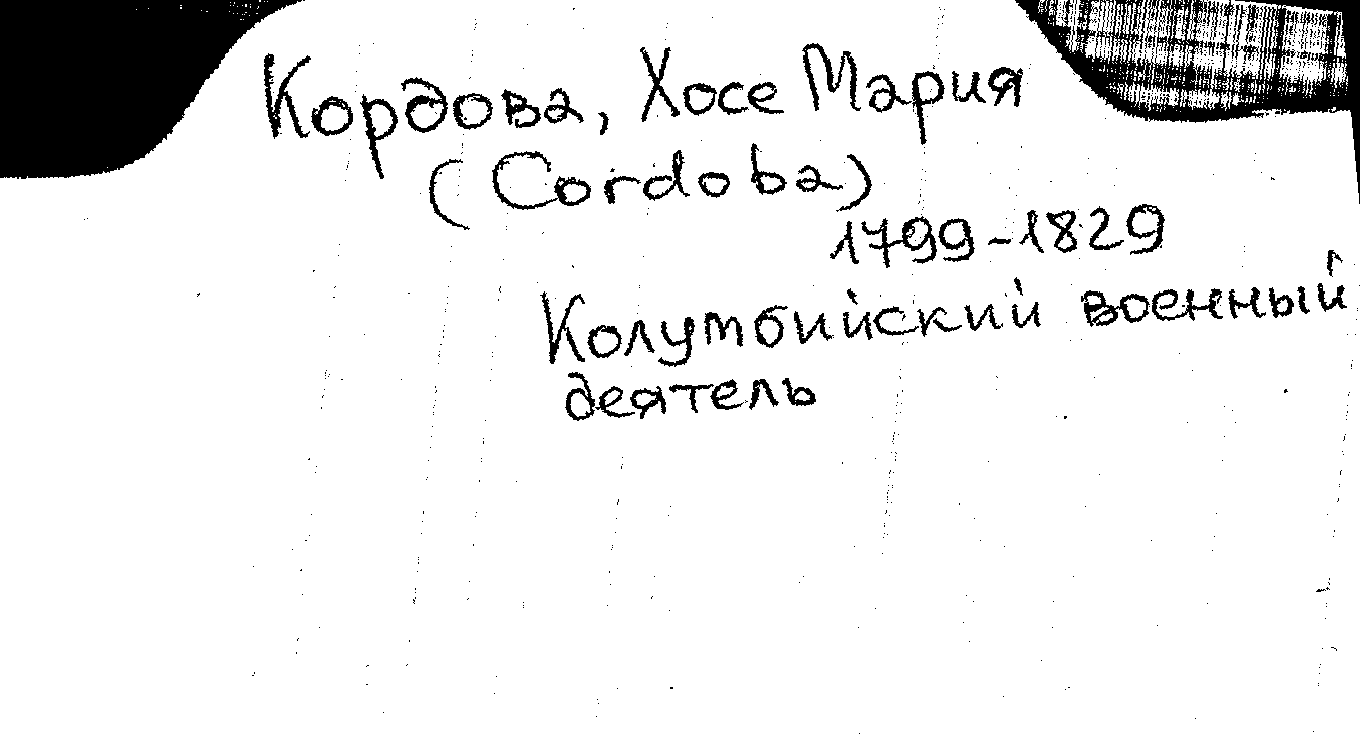 Кордова, Хосе Мария
(Cordoba)
1799-1829
Колумбийский военный
деятель